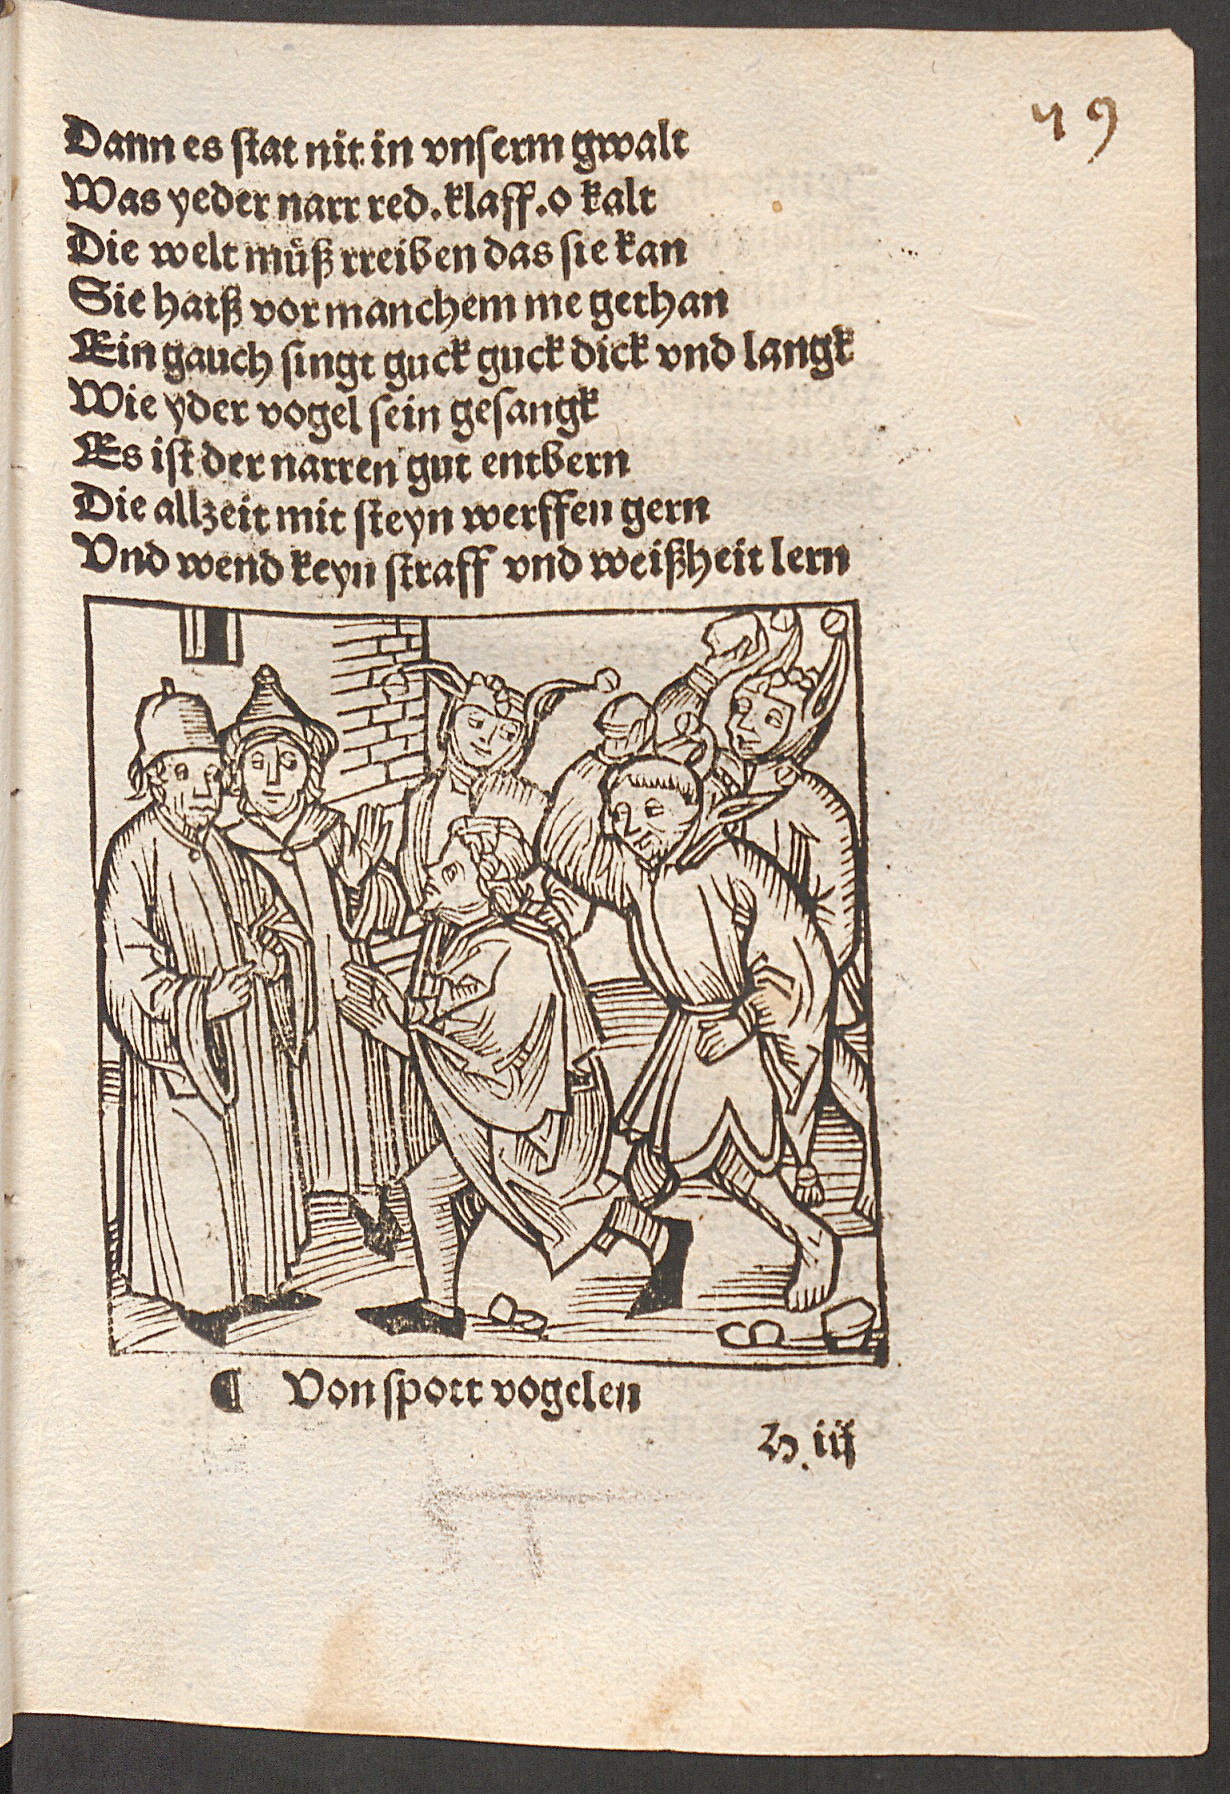 49
Dann es ſtat nit in vnſerm gwalt
Was yeder narr red.klaff.o kalt
Die welt muͤß treiben das ſie kan
Sie hatß vor manchem me gethan
Ein gauch ſingt guck guck dick vnd langk
Wie yder vogel ſein geſangk
Es iſt der narren gut entbern
Die allzeit mit ſteyn werffen gern
Vnd wend keyn ſtraff vnd weißheit lern
¶ Von ſpott vogelen
H iij